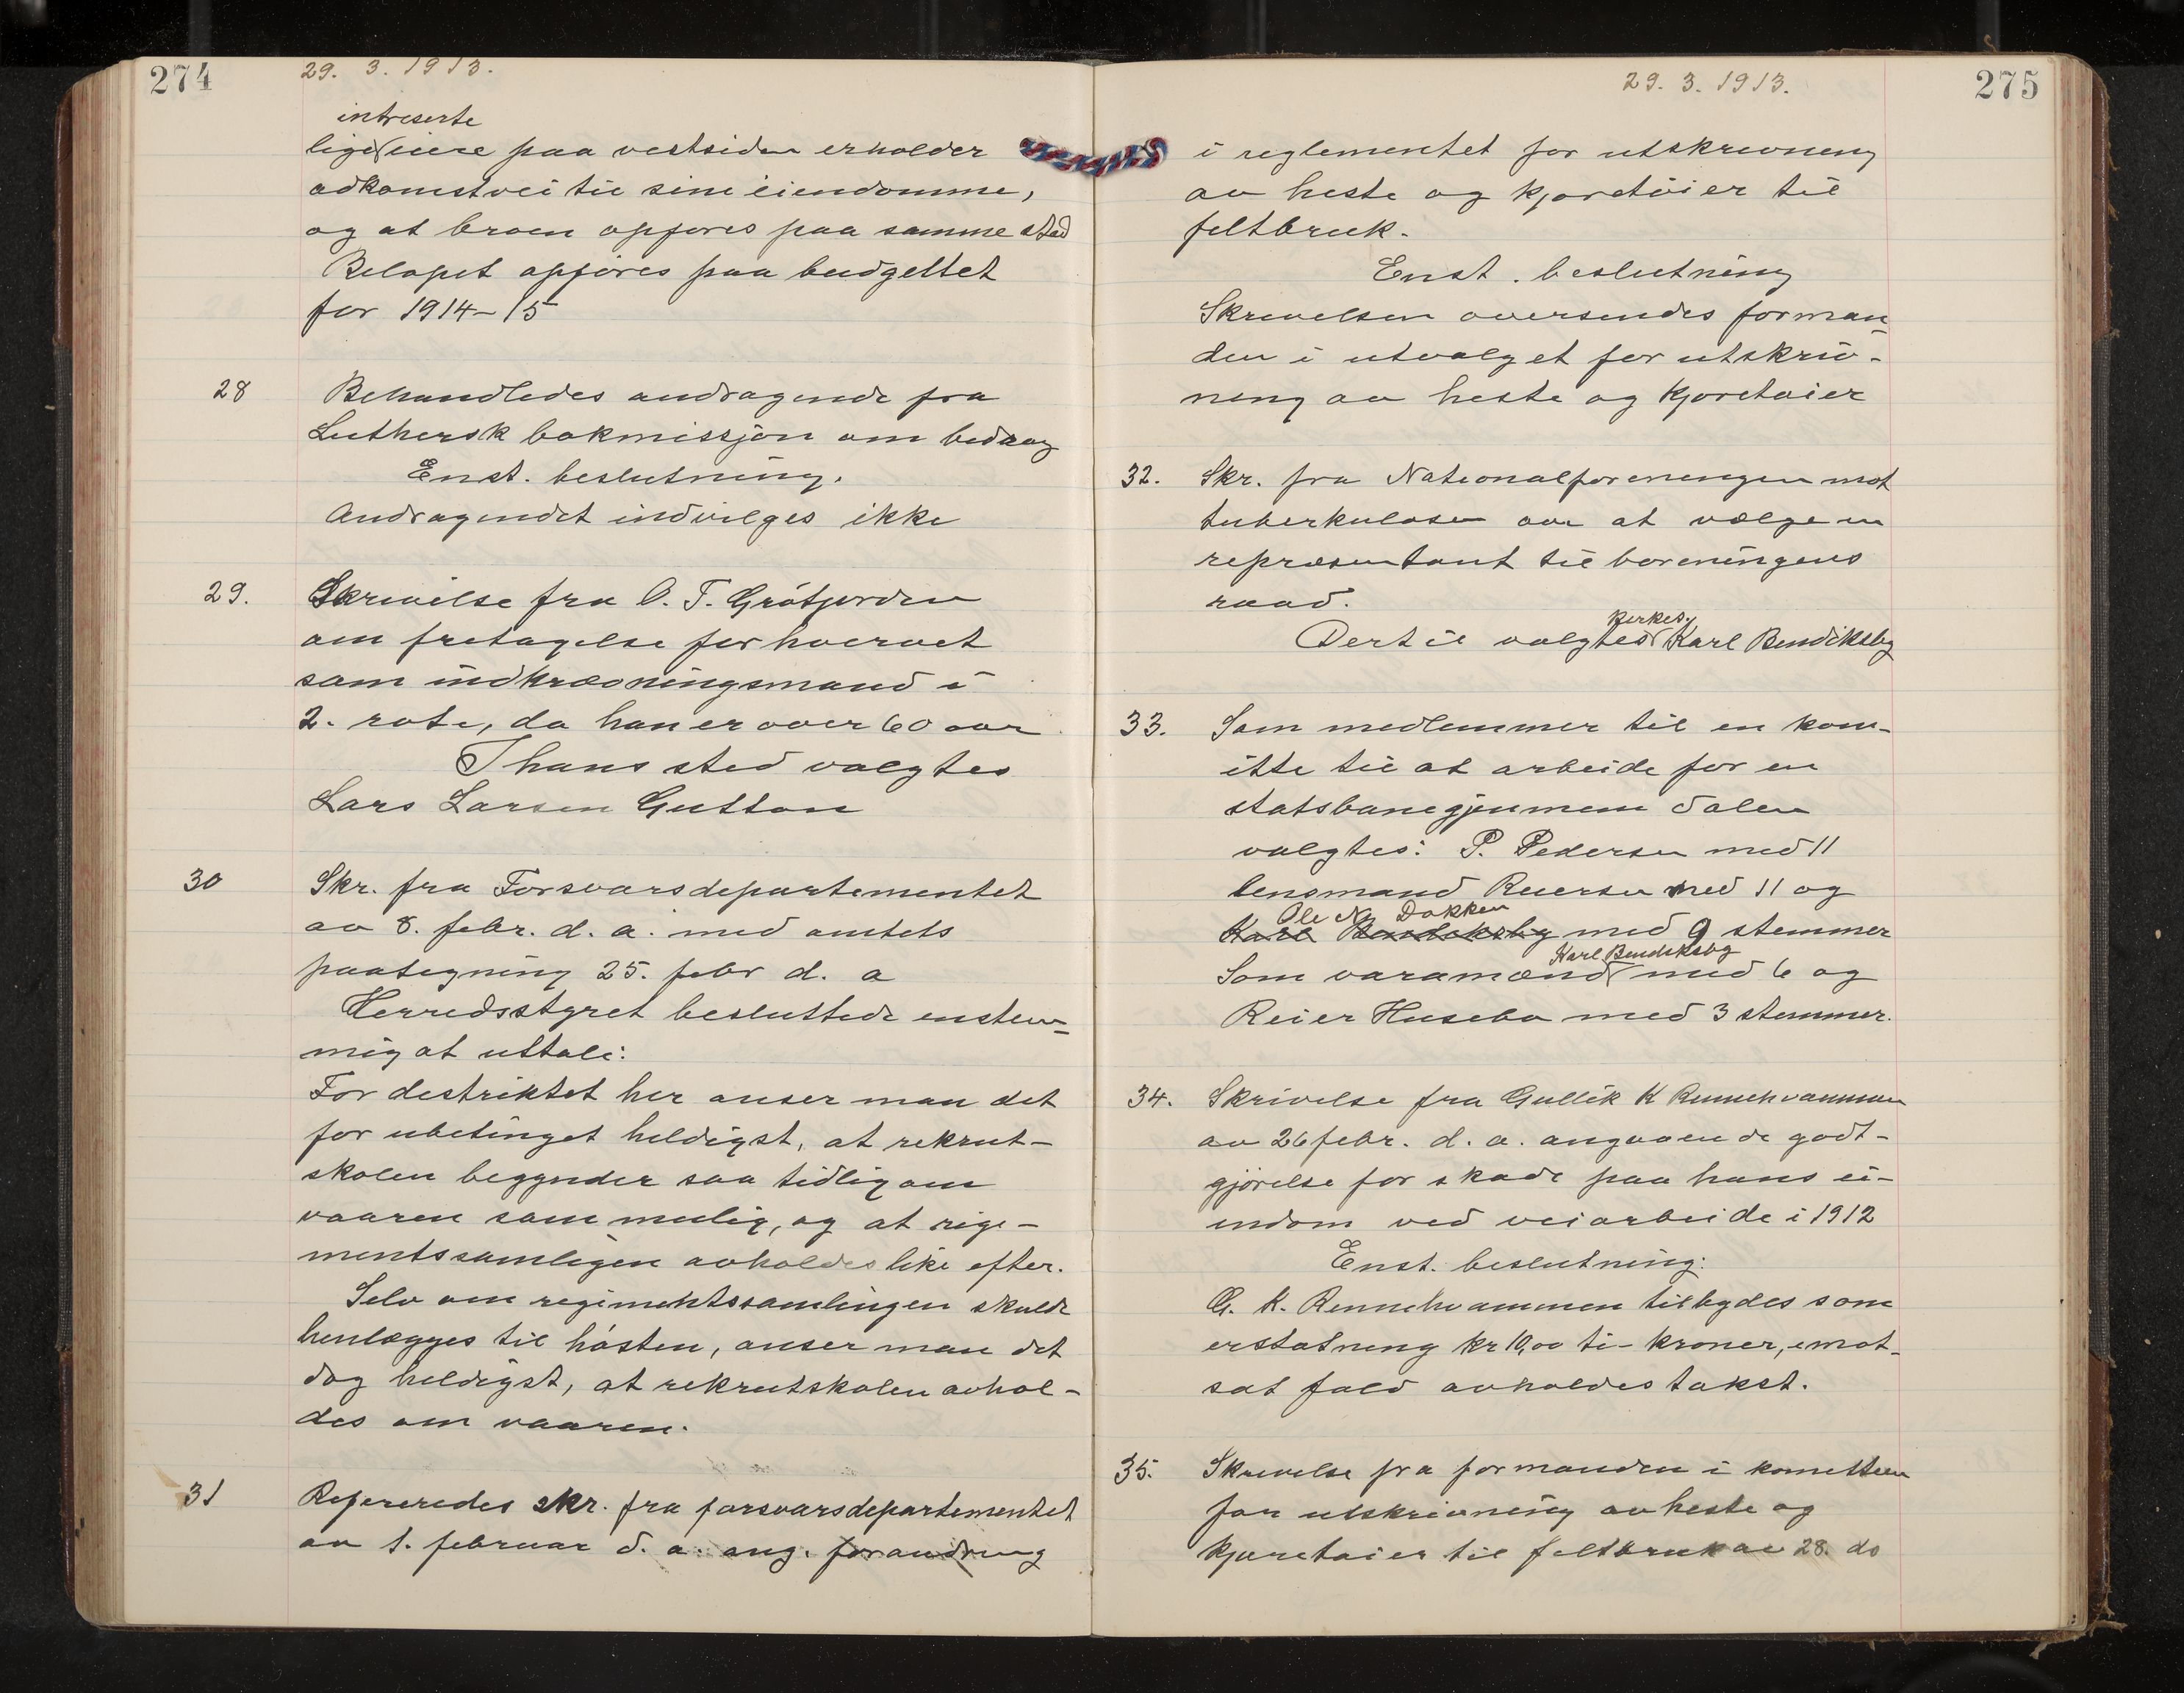 274
29. 3. 1913.
intreserte
lige eiere paa vestsiden erholder
adkomstvei til sine eiendomme,
og at broen opføres paa samme sted
Beløpet opføres paa budgettet
for 1914-15
28 Behandledes andragende fra
Luthersk bokmissjon om bidrag
Enst. beslutning.
Andragendet indvilges ikke
29. Skrivelse fra O. T. Grøtjorden
om fretagelse for hvervet
som indkrævningsmand i
2. rote, da han er over 60 aar
I hans sted valgtes
Lars Larsen Gutton
30 Skr. fra Forsvarsdepartementet
av 8. febr. d. a. med amtets
paategning 25. febr d. a
Herredsstyret besluttede enstem=
mig at uttale:
For destriktet her anser man det
for ubetinget heldigst, at rekrut-
skolen begynder saa tidlig om
vaaren som mulig, og at rige-
mentssamligen avholdes like efter.
Selv om regimentssamlingen skulde
henlægges til høsten, anser man det
dog heldigst, at rekrutskolen avhol-
des om vaaren.
31 Refereredes skr. fra forsvarsdepartementet
av 1. februar d. a. ang. forandring
275
29. 3. 1913.
i reglementet for utskrivning
av heste og kjøretøier til
feltbruk.
Enst. beslutning
Skrivelsen oversendes forman
den i utvalget for utskriv-
ning av heste og kjøretøier
32. Skr. fra Nationalforeningen mot
tuberkulosen om at vælge en
repræsentant til foreningens
raad.
kirkes.
Dertil valgtes Karl Bendiksby
33. Som medlemmer til en kom-
itte til at arbeide for en
statsbane gjennem dalen
valgtes: P. Pedersen med 11
lensmand Reiersen med 11 og
Ole N. Dokken
Karl Bendiksby med 9 stemmer
Karl Bendiksby
Som varamænd med 6 og
Reier Husebø med 3 stemmer.
34. Skrivelse fra Gullik K Rennehvammen
av 26 febr. d. a. angaaende godt-
gjørelse for skade paa hans ei-
endom ved veiarbeide i 1912
Enst. beslutning:
G. K. Rennehvammen tilbydes som
erstatning kr 10,00 ti- kroner, i mot-
sat fald avholdes takst.
35. Skrivelse fra formanden i komitteen
for utskrivning av heste og
kjøretøier til feltbruk av 28. ds